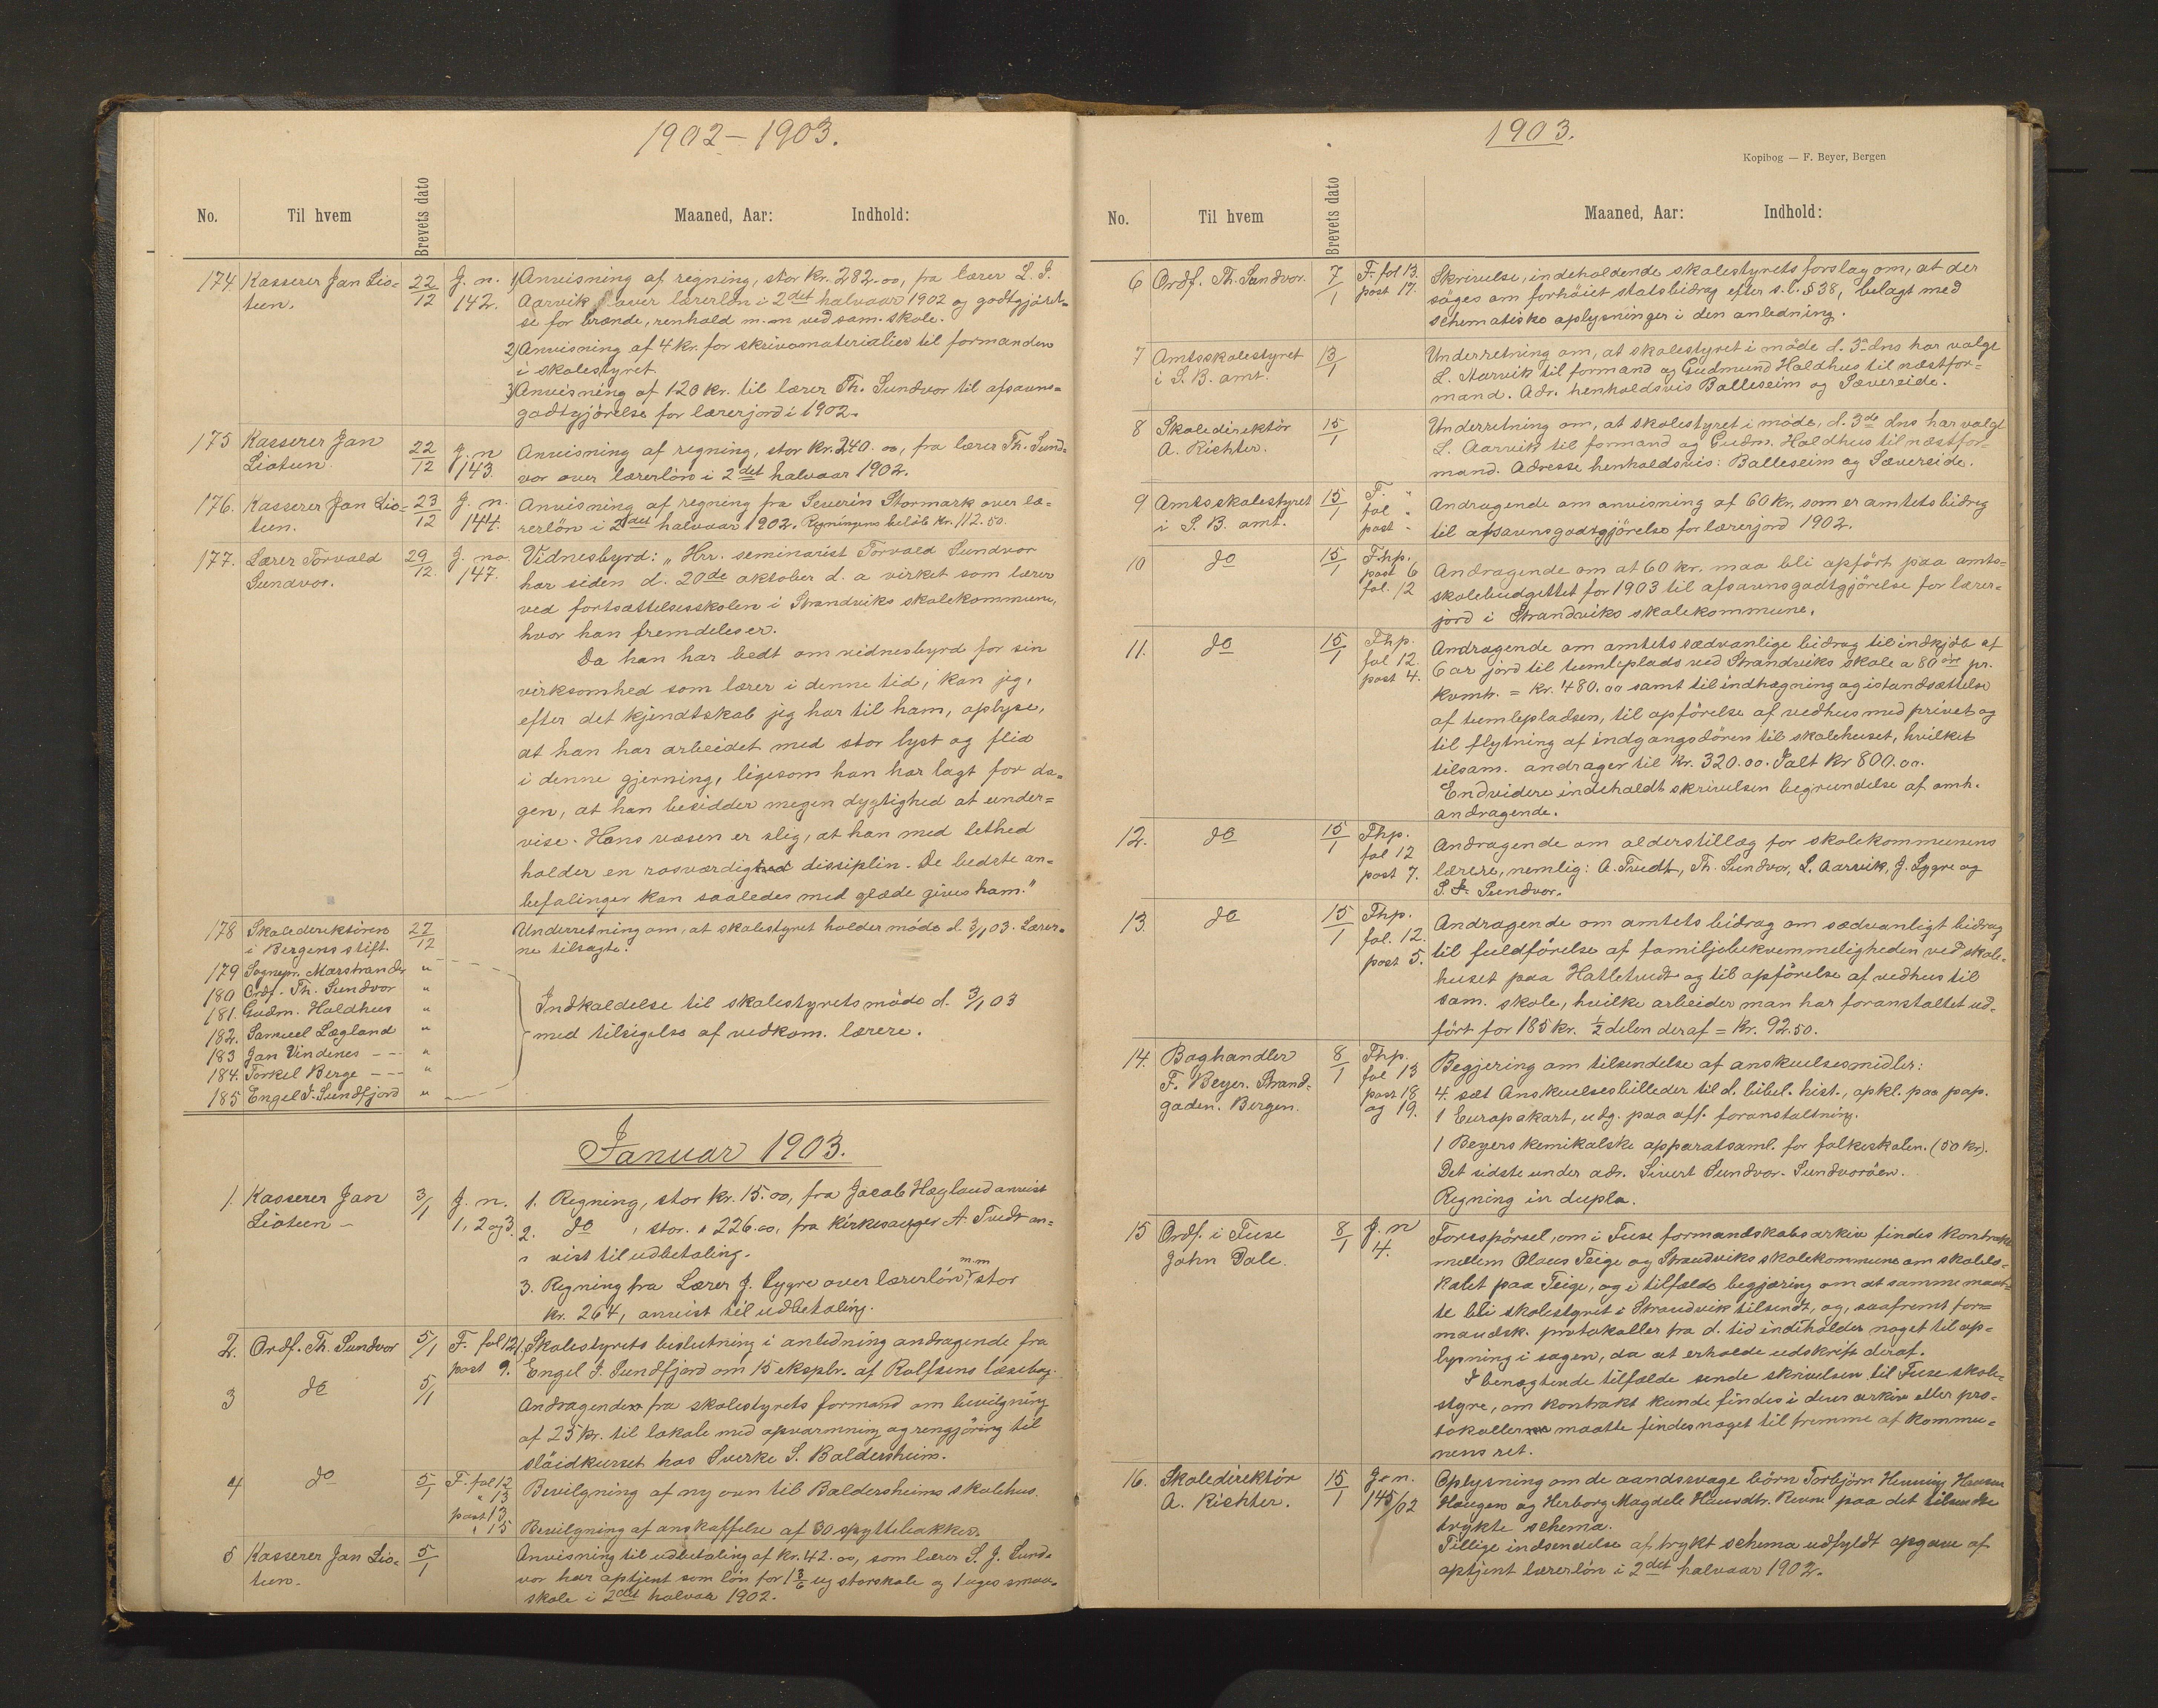 1902-1903.
No. Til hvem Brevets dato Maaned, Aar: Indhold:
174 Kasserer Jan Lio= 22/12 J. n. 1) Anvisning af regning, stor kr. 282.00, fra lærer L. S.
teen. 142. Aarvik over lærerløn i 2det halvaar 1902 og godtgjørel=
se for brænde, renhold m.m ved sam. skole.
2) Anvisning af 4 kr. for skrivematerialier til formanden
i skolestyret.
3) Anvisning af 120 kr. til lærer Th. Sundvor til afsavns=
godtgjörelse for lærerjord i 1902.
175 Kasserer Jan 22/12 J. n Anvisning af regning, stor kr. 240.00, fra lærer Th. Sund=
Lioteen 143. vor over lærerlön i 2det halvaar 1902.
176. Kasserer Jan Lio= 23/12 J. n. Anvisning af regning fra Severin Stormark over læ=
teen. 144. rerlön i 2det halvaar 1902. Regningens beløb kr. 112.50.
177. Lærer Torvald 29/12. J. no Vidnesbyrd: „Hrr. seminarist Torvald Sundvor
Sundvor. 147. har siden d. 20de oktober d. a virket som lærer
ved fortsættelsesskolen i Strandviks skolekommune,
hvor han fremdeles er.
Da han har bedt om vidnesbyrd for sin
virksomhed som lærer i denne tid, kan jeg,
efter det kjendtskab jeg har til ham, oplyse,
at han har arbeidet med stor lyst og flid
i denne gjerning, ligesom han har lagt for da=
gen, at han besidder megen dygtighed at under=
vise. Hans væsen er slig, at han med lethed
holder en rosværdig dissiplin. De bedste an=
befalinger kan saaledes med glæde gives ham."
178 Skoledirektören 27/12 Underretning om, at skolestyret holder möde d. 3/1 03. Lærer=
i Bergens stift. ne tilsagte.
179 Sognepr. Marstrander "
180 Ordf. Th. Sundvor "
181. Gudm. Haldhus " Indkaldelse til skolestyretsmöde d. 3/1 03
182. Samuel Lægland " med tilsigelse af vedkom. lærere.
183 Jan Vindenes - - "
184. Torkel Berge - - - "
185 Engel J. Sundfjord "
Januar 1903.
1. Kasserer Jan 3/1 J. n. 1. Regning, stor kr. 15.00, fra Jacob Hægland anvist
Lioteen - 1, 2 og 3. 2. do , stor. " 226.00, fra kirkesanger A. Tvedt an=
" vist til udbetaling.
3. Regning fra Lærer J. Lygre over lærerlön m.m, stor
kr. 264, anvist til udbetaling.
2. Ordf. Th. Sundvor 5/1 F. fol 12 Skolestyrets beslutning i anledning andragende fra
post 9. Engel J. Sundfjord om 15 eksplr. af Rolfsens læsebog.
3 do 5/1 Andragender fra skolestyrets formand om bevilgning
af 25 kr. til lokale med opvarmning og rengjöring til
slöidkurset hos Sverke S. Baldersheim.
4 do 5/1 F. fol 12 Bevilgning af ny ovn til Baldersheims skolehus.
" 13
post 13
" 15 Bevilgning af anskaffelse af 30 spyttebakker.
5 Kasserer Jan Lio= 5/1 Anvisning til udbetaling af kr. 42.00, som lærer S. J. Sund=
teen. vor har optjent som lön for 1 3/6 ug storskole og 1 uges smaa=
skole i 2det halvaar 1902.
1903.
Kopibog — F. Beyer, Bergen
No. Til hvem Brevets dato Maaned, Aar: Indhold:
6 Ordf. Th. Sundvor. 7/1 F. fol 13. Skrivelse, indeholdende skolestyrets forslag om, at der
post 17. söges om forhöiet statsbidrag efter s.l. § 38, belagt med
schematiske oplysninger i den anledning.
7 Amtsskolestyret 13/1 Underretning om, at skolestyret i möde d. 3 dns har valgt
i S. B. amt. L. Aarvik til formand og Gudmund Haldhus til næstfor=
mand. Adr. henholdsvis Balleseim og Sævereide.
8 Skoledirektör 15/1 Underretning om, at skolestyret i möde, d. 3de dns har valgt
A. Richter. L. Aarvik til formand og Gudm. Haldhus til næstfor=
mand. Adresse henholdsvis: Balleseim og Sæverside.
9 Amtsskolestyret 15/1 F. " Andragende om anvisning af 60 kr, som er amtets bidrag
i S. B. amt. fol " til afsavnsgodtgjörelse for lærerjord 1902.
post "
10 do 15/1 Fhp. Andragende om at 60 kr. maa bli opført paa amts=
post 6 skolebudgettet for 1903 til afsavnsgodtgjörelse for lærer=
fol. 12 jord i Strandviks skolekommune.
11. do 15/1 Fhp. Andragende om amtets sædvanlige bidrag til indkjöb af
fol 12. 6 ar jord til tumleplads ved Strandviks skole a 80 öre pr.
post 4. kvmtr. = kr. 480.00 samt til indhegning og istandsættelse
af tumlepladsen, til opförelse af vedhus med privet og
til flytning af indgangsdören til skolehuset, hvilket
tilsam. andrager til kr. 320.00. Ialt kr 800.00.
Endvidere indeholdt skrivelsen begrundelse af omh.
andragende.
12. do 15/1 Fhp. Andragende om alderstillæg for skolekommunens
fol 12 lærere, nemlig: A. Tvedt, Th. Sundvor, L. Aarvik, J. Lygre og
post 7. S. J. Sundvor.
13. do 15/1 Fhp. Andragende om amtets bidrag om sædvanligt bidrag
fol. 12. til fuldförelse af familjebekvemmeligheden ved skole=
post 5. huset paa Hatletvedt og til opförelse af vedhus til
sam. skole, hvilke arbeider man har foranstaltet ud=
fört for 185 kr. 1/2 delen deraf = kr. 92.50.
14. Boghandler 8/1 Fhp. Begjering om tilsendelse af anskuelsesmidler:
F. Beyer. Strand= fol 13 4. sæt Anskuelsesbilleder til d. bibel. hist., opkl. paa pap.
gaden. Bergen. post 18 1 Europakart, udg. paa off. foranstaltning.
og 19. 1 Beyers kemikalske apparatsaml. for folkeskolen. (50 kr).
Det sidste under adr. Sivert Sundvor. Sundvoröen.
Regning in dupla.
15 Ordf. i Fuse 8/1 J. n Forespörsel, om i Fuse formandskabsarkiv findes kontrakt
John Dale. 4. mellem Olaus Teige og Strandviks skolekommune om skolelo=
kalet paa Teige, og i tilfælde begjæring om at samme maat=
te bli skolestyret i Strandvik tilsendt, og, saafremt for=
mandsk. protokoller fra d. tid indeholder noget til op=
lysning i sagen, da at erholde udskrift deraf.
I benægtende tilfælde sende skrivelsen til Fuse skole=
styre, om kontrakt kunde findes i deres arkiv eller pro=
tokoller maatte findes noget til fremme af kommu=
nens ret.
16. Skoledirektör 15/1 J. n. Oplysning om de aandssvage börn Torbjörn Henning Hansen
A. Richter. 145/02 Haugen og Herborg Magdele Hansdtr. paa det tilsendte
trykte schema.
Tillige indsendelse af trykt schema udfyldt opgave af
optjent lærerlön i 2det halvaar 1902.